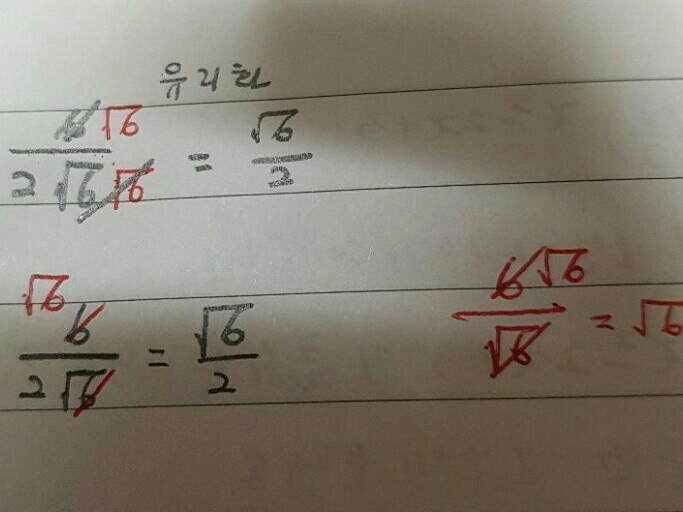 유리화
6√6 / 2√6√6 = √6 / 2
√6 6 / 2√6 = √6 / 2
6√6 / √6 = √6